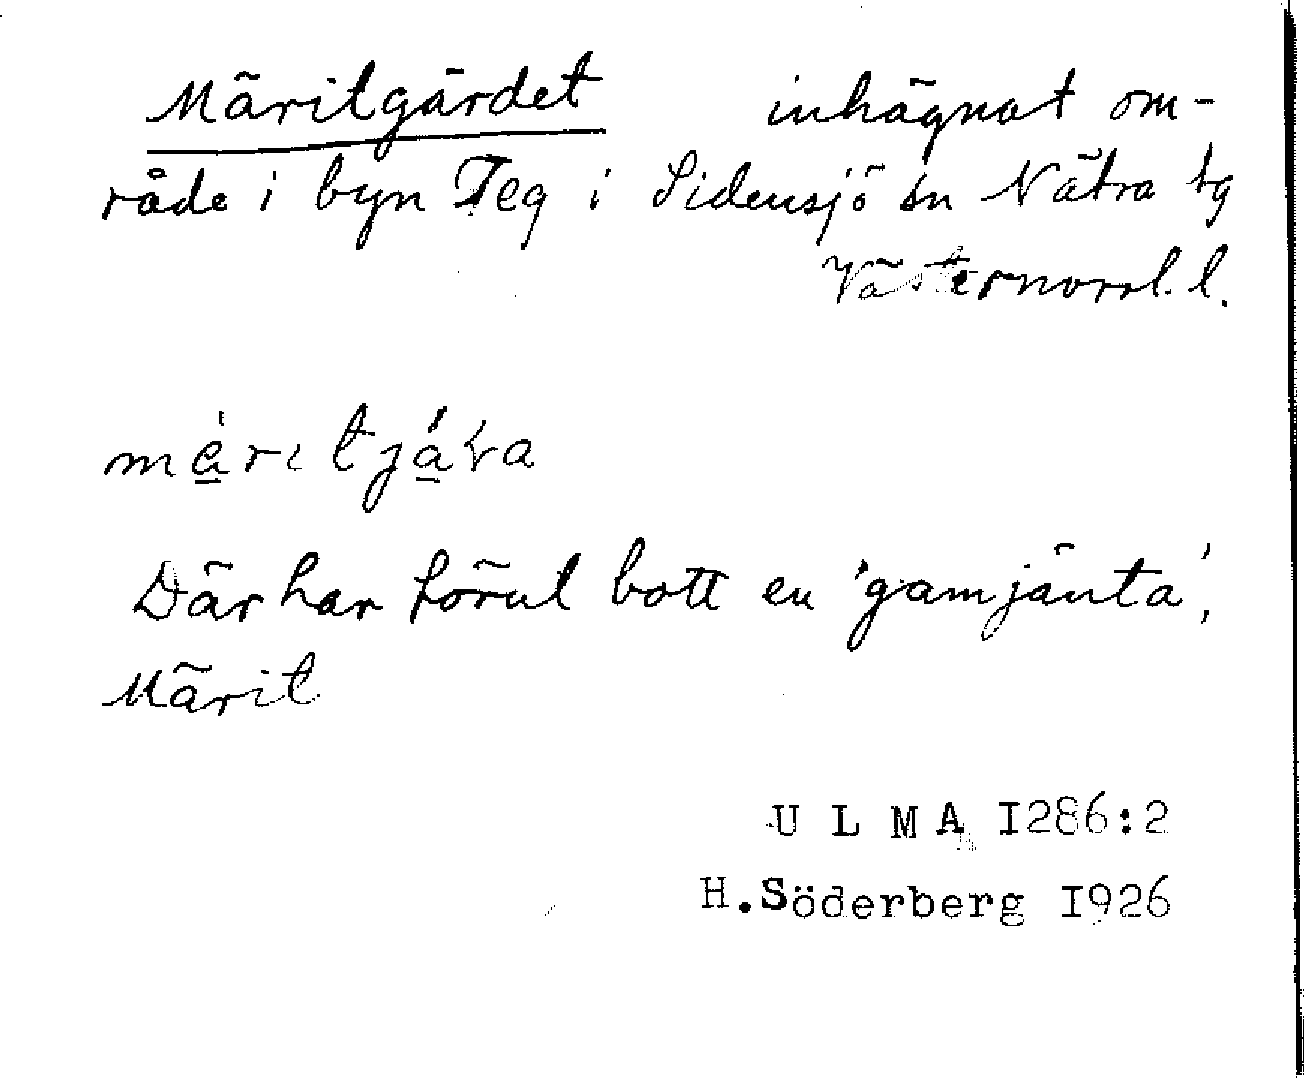 Märitgärdet inhägnat om-
råde i byn Teg i Sidensjö sn Nätra tg
Västernorrl. l.
Där har förut bott en 'gamjänta',
Märit
U L M A I286:2
H.Söderberg I926